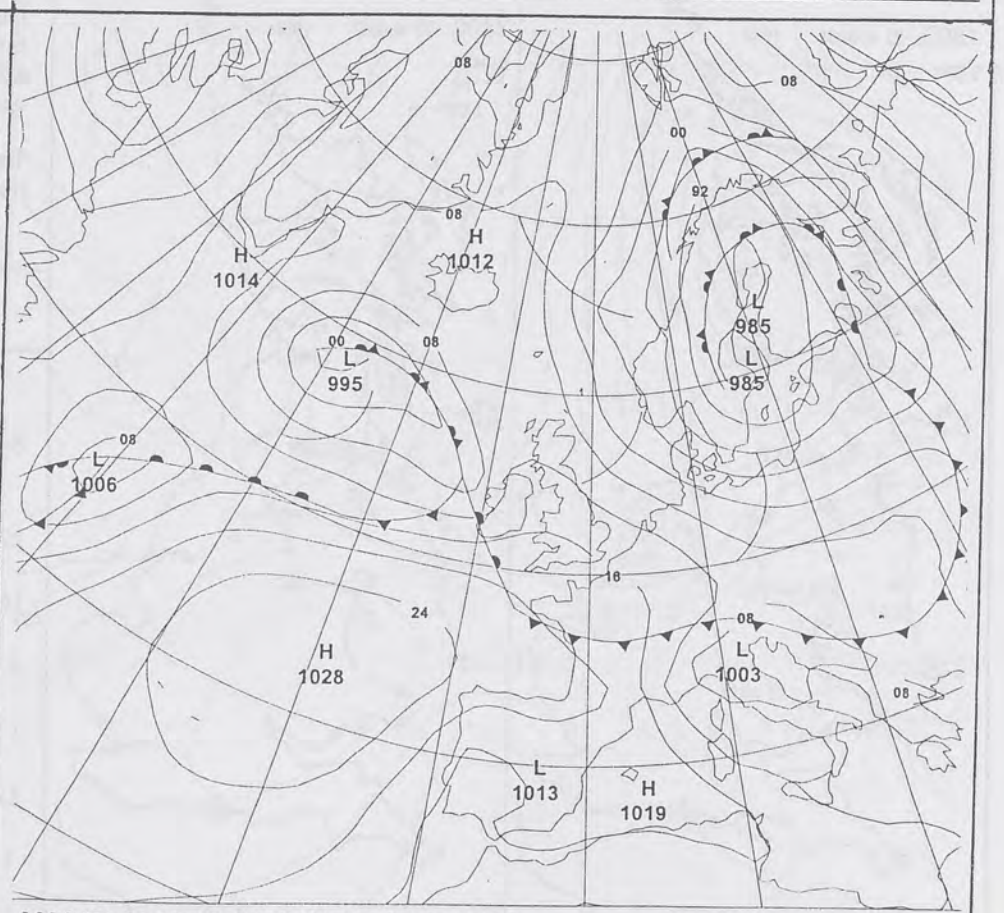 08
08
00
92
08
H
1012
H
1014
L
985
00
08
L
995
L
985
08
L
1006
16
24
08
H
1028
L
1003
08
L
1013
H
1019